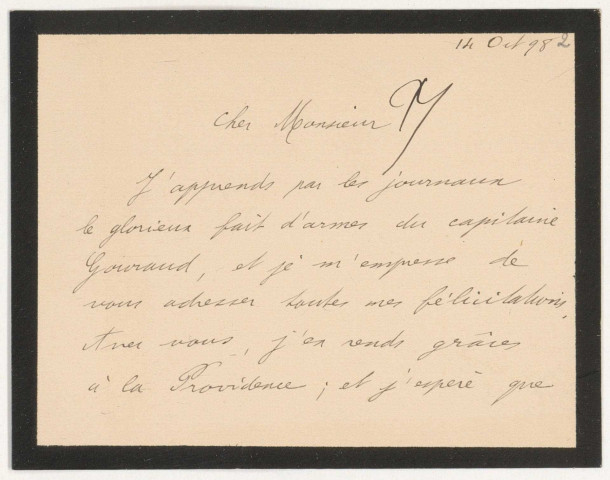 14 Oct 98 2
Cher Monsieur
J'apprends par les journaux
le glorieux fait d'armes du capitaine
Gouraud, et je m'empresse de
vous adresser toutes mes félicitations,
Avec vous, j'en rends grâces
à la Providence ; et j'espère que